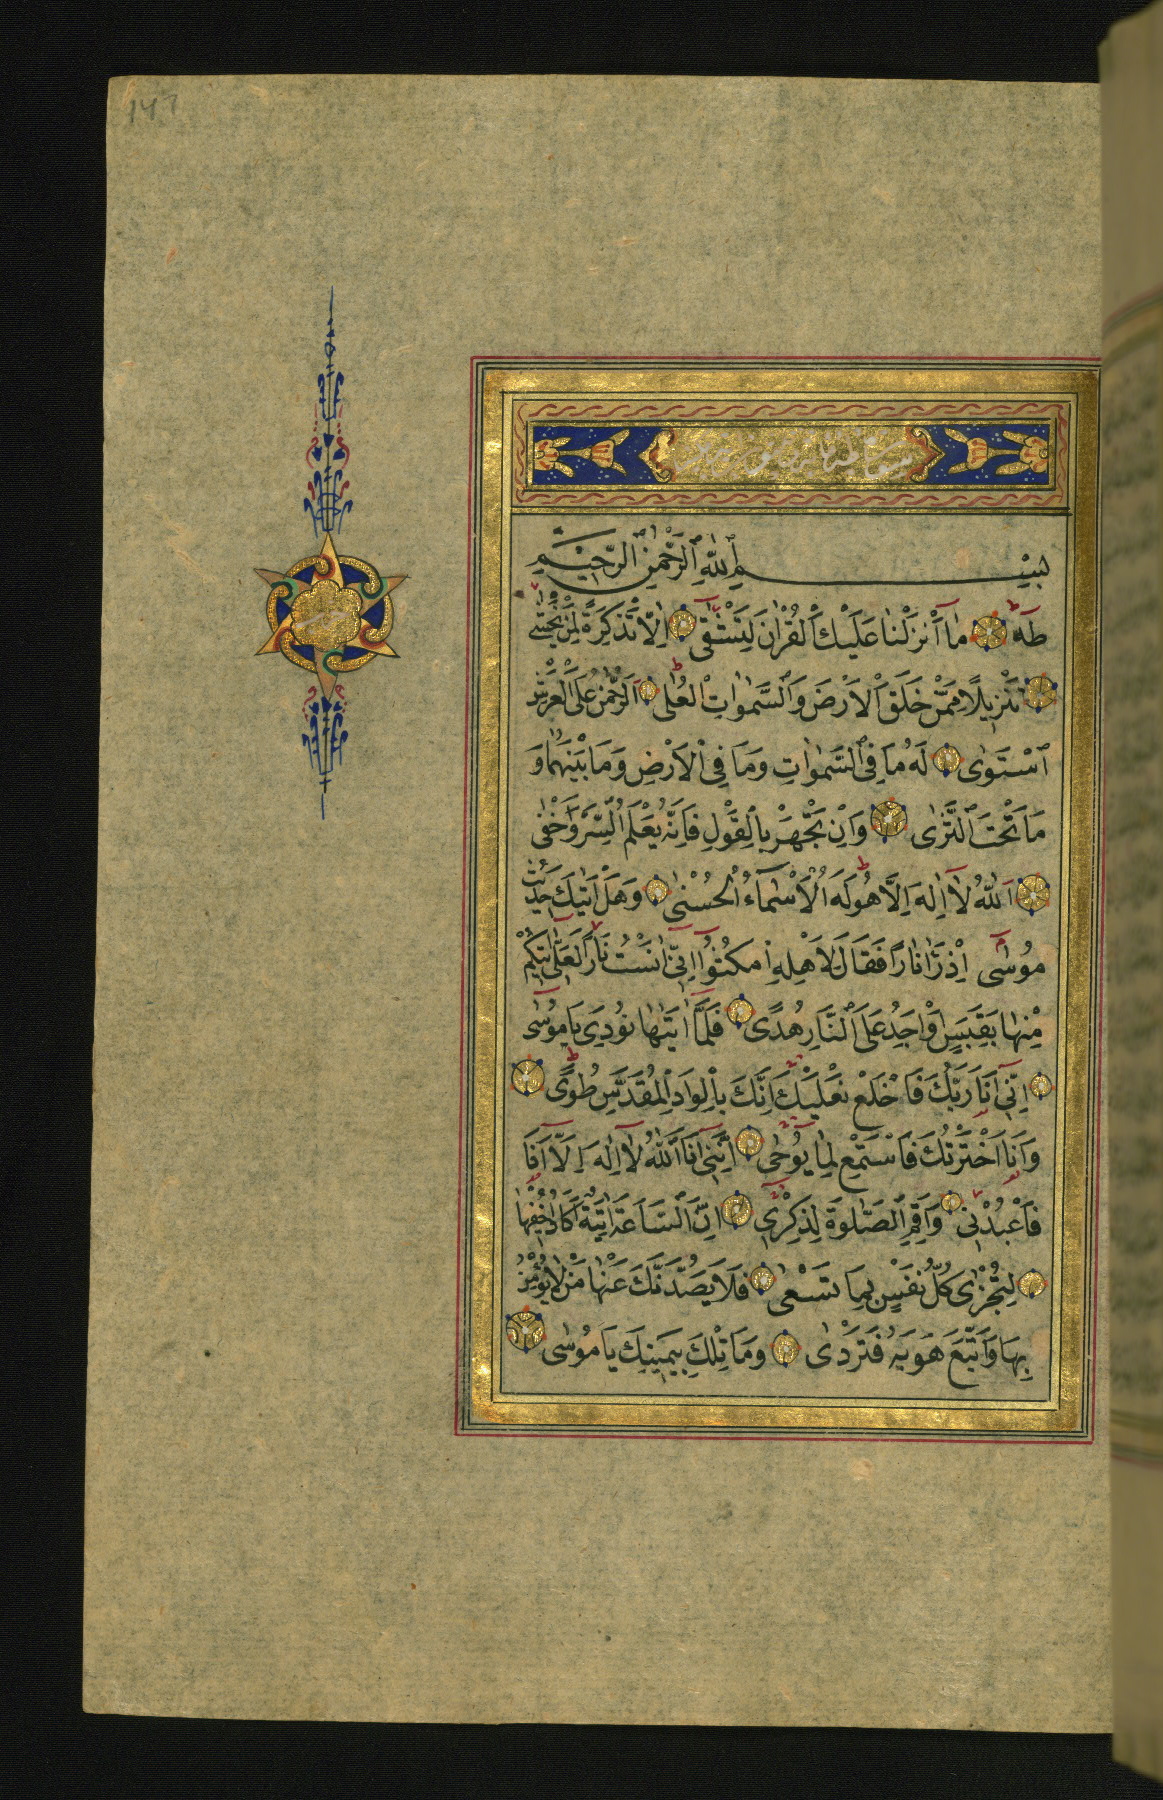 بِسْمِ اللّٰهِ الرَّحْمٰنِ الرَّحِيمِ
طٰهٰ مَآ اَنْزَلْنَا عَلَيْكَ الْقُرْاٰنَ لِتَشْقٰى اِلَّا تَذْكِرَةً لِمَنْ يَخْشٰى
تَنْزِيلًا مِمَّنْ خَلَقَ الْاَرْضَ وَالسَّمٰوَاتِ الْعُلٰى اَلرَّحْمٰنُ عَلَى الْعَرْشِ
اسْتَوٰى لَهُ مَا فِى السَّمٰوَاتِ وَمَا فِى الْاَرْضِ وَمَا بَيْنَهُمَا وَ
مَا تَحْتَ الثَّرٰى وَاِنْ تَجْهَرْ بِالْقَوْلِ فَاِنَّهُ يَعْلَمُ السِّرَّ وَاَخْفٰى
اَللّٰهُ لَآ اِلٰهَ اِلَّا هُوَ لَهُ الْاَسْمَآءُ الْحُسْنٰى وَهَلْ اَتٰيكَ حَدِيثُ
مُوسٰى اِذْ رَاٰ نَارًا فَقَالَ لِاَهْلِهِ امْكُثُوٓا اِنِّىٓ اٰنَسْتُ نَارًا لَعَلِّىٓ اٰتِيكُمْ
مِنْهَا بِقَبَسٍ اَوْ اَجِدُ عَلَى النَّارِ هُدًى فَلَمَّآ اَتٰيهَا نُودِىَ يَا مُوسٰى
اِنِّىٓ اَنَا رَبُّكَ فَاخْلَعْ نَعْلَيْكَ اِنَّكَ بِالْوَادِ الْمُقَدَّسِ طُوًى
وَاَنَا اخْتَرْتُكَ فَاسْتَمِعْ لِمَا يُوحٰى اِنَّنِىٓ اَنَا اللّٰهُ لَآ اِلٰهَ اِلَّآ اَنَا
فَاعْبُدْنِى وَاَقِمِ الصَّلٰوةَ لِذِكْرِى اِنَّ السَّاعَةَ اٰتِيَةٌ اَكَادُ اُخْفِيهَا
لِتُجْزٰى كُلُّ نَفْسٍ بِمَا تَسْعٰى فَلَا يَصُدَّنَّكَ عَنْهَا مَنْ لَا يُؤْمِنُ
بِهَا وَاتَّبَعَ هَوٰيهُ فَتَرْدٰى وَمَا تِلْكَ بِيَمِينِكَ يَا مُوسٰى